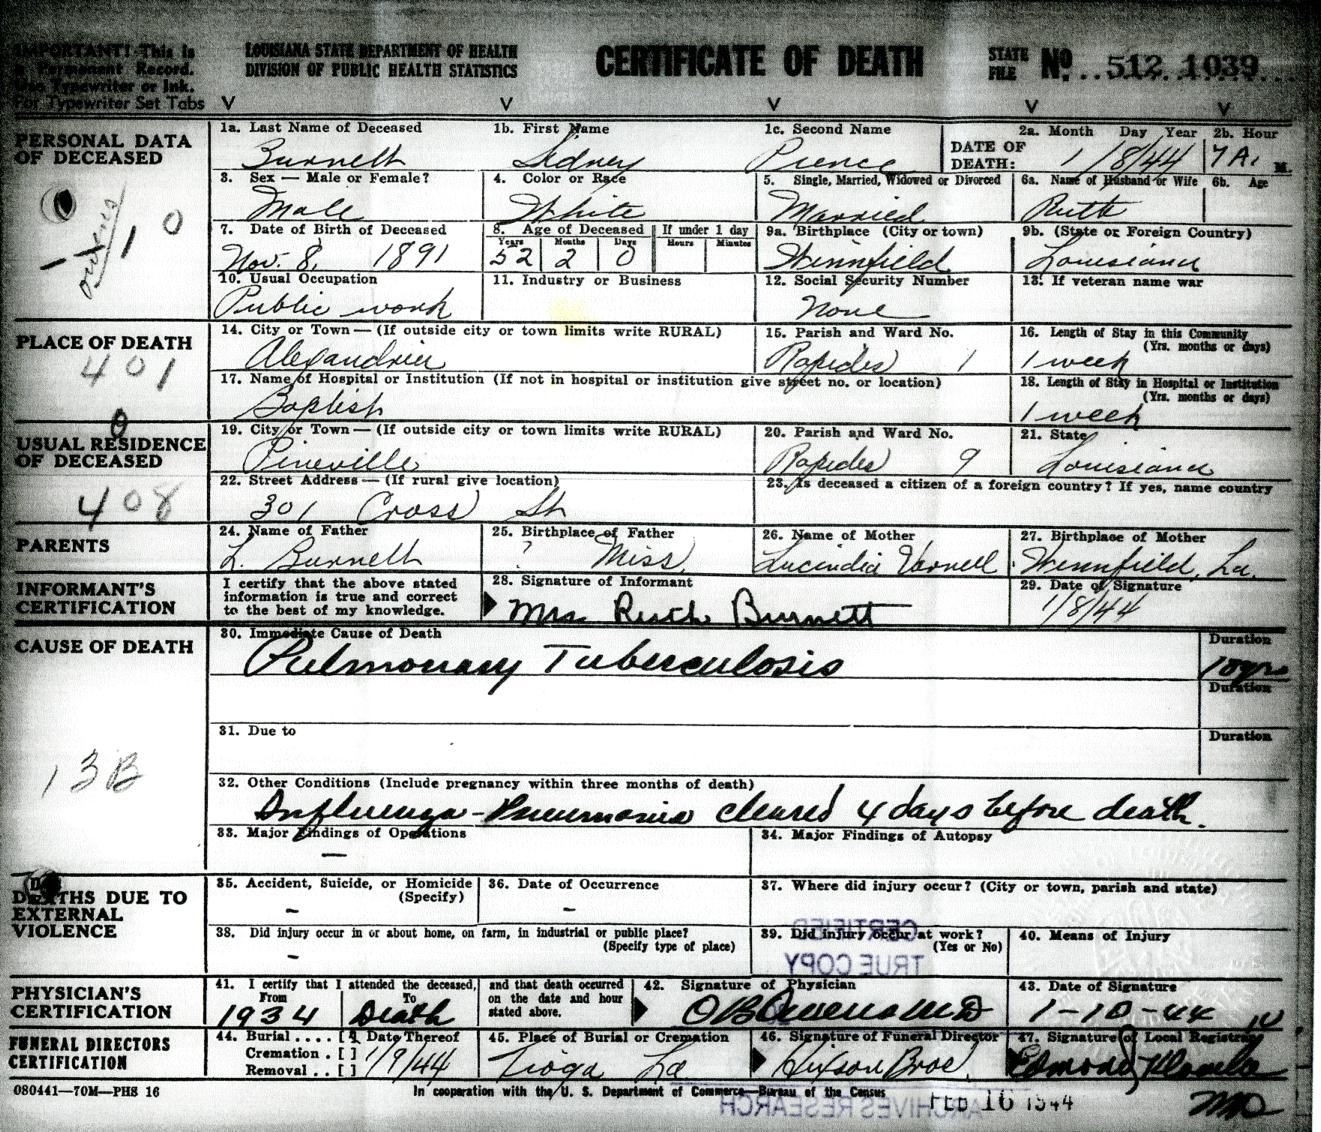 IMPORTANT! This is
a Permanent Record.
Use Typewriter or Ink.
For Typewriter Set Tabs
LOUISIANA STATE DEPARTMENT OF HEALTH
DIVISION OF PUBLIC HEALTH STATISTICS
CERTIFICATE OF DEATH
STATE FILE No. 512 1039
V V V V V
PERSONAL DATA OF DECEASED
1a. Last Name of Deceased 1b. First Name 1c. Second Name DATE OF DEATH: 2a. Month Day Year 2b. Hour
Burnett Sidney Pierce 1/8/44 7 A. M.
3. Sex — Male or Female? 4. Color or Race 5. Single, Married, Widowed or Divorced 6a. Name of Husband or Wife 6b. Age
Male White Married Ruth
7. Date of Birth of Deceased 8. Age of Deceased If under 1 day 9a. Birthplace (City or town) 9b. (State or Foreign Country)
Years Months Days Hours Minutes
Nov. 8, 1891 52 2 0 Winnfield Louisiana
10. Usual Occupation 11. Industry or Business 12. Social Security Number 13. If veteran name war
Public work None
PLACE OF DEATH
401
14. City or Town — (If outside city or town limits write RURAL) 15. Parish and Ward No. 16. Length of Stay in this Community
(Yrs. months or days)
Alexandria Rapides 1 1 week
17. Name of Hospital or Institution (If not in hospital or institution give street no. or location) 18. Length of Stay in Hospital or Institution
(Yrs. months or days)
Baptist 1 week
USUAL RESIDENCE OF DECEASED
408
19. City or Town — (If outside city or town limits write RURAL) 20. Parish and Ward No. 21. State
Pineville Rapides 9 Louisiana
22. Street Address — (If rural give location) 23. Is deceased a citizen of a foreign country? If yes, name country
301 Cross St
PARENTS
24. Name of Father 25. Birthplace of Father 26. Name of Mother 27. Birthplace of Mother
L. Burnett ? Miss. Lucindia Varnell Winnfield, La.
INFORMANT'S CERTIFICATION
I certify that the above stated information is true and correct to the best of my knowledge.
28. Signature of Informant 29. Date of Signature
Mrs. Ruth Burnett 1/8/44
CAUSE OF DEATH
13B
30. Immediate Cause of Death Duration
Pulmonary Tuberculosis 10 yrs
Duration
31. Due to Duration
32. Other Conditions (Include pregnancy within three months of death)
Influenza - Pneumonia cleared 4 days before death.
33. Major Findings of Operations 34. Major Findings of Autopsy
—
DEATHS DUE TO EXTERNAL VIOLENCE
35. Accident, Suicide, or Homicide 36. Date of Occurrence 37. Where did injury occur? (City or town, parish and state)
(Specify)
– –
38. Did injury occur in or about home, on farm, in industrial or public place? 39. Did injury occur at work? 40. Means of Injury
(Specify type of place) (Yes or No)
–
CERTIFIED
TRUE COPY
PHYSICIAN'S CERTIFICATION
41. I certify that I attended the deceased, and that death occurred on the date and hour stated above. 42. Signature of Physician 43. Date of Signature
From To
1934 Death 1-10-44
FUNERAL DIRECTORS CERTIFICATION
44. Burial .... [ ] Date Thereof 45. Place of Burial or Cremation 46. Signature of Funeral Director 47. Signature of Local Registrar
Cremation . [ ]
Removal .. [ ]
1/9/44 Tioga La Hixson Bros.
080441—70M—PHS 16
In cooperation with the U. S. Department of Commerce—Bureau of the Census
FEB 16 1944
ARCHIVES RESEARCH